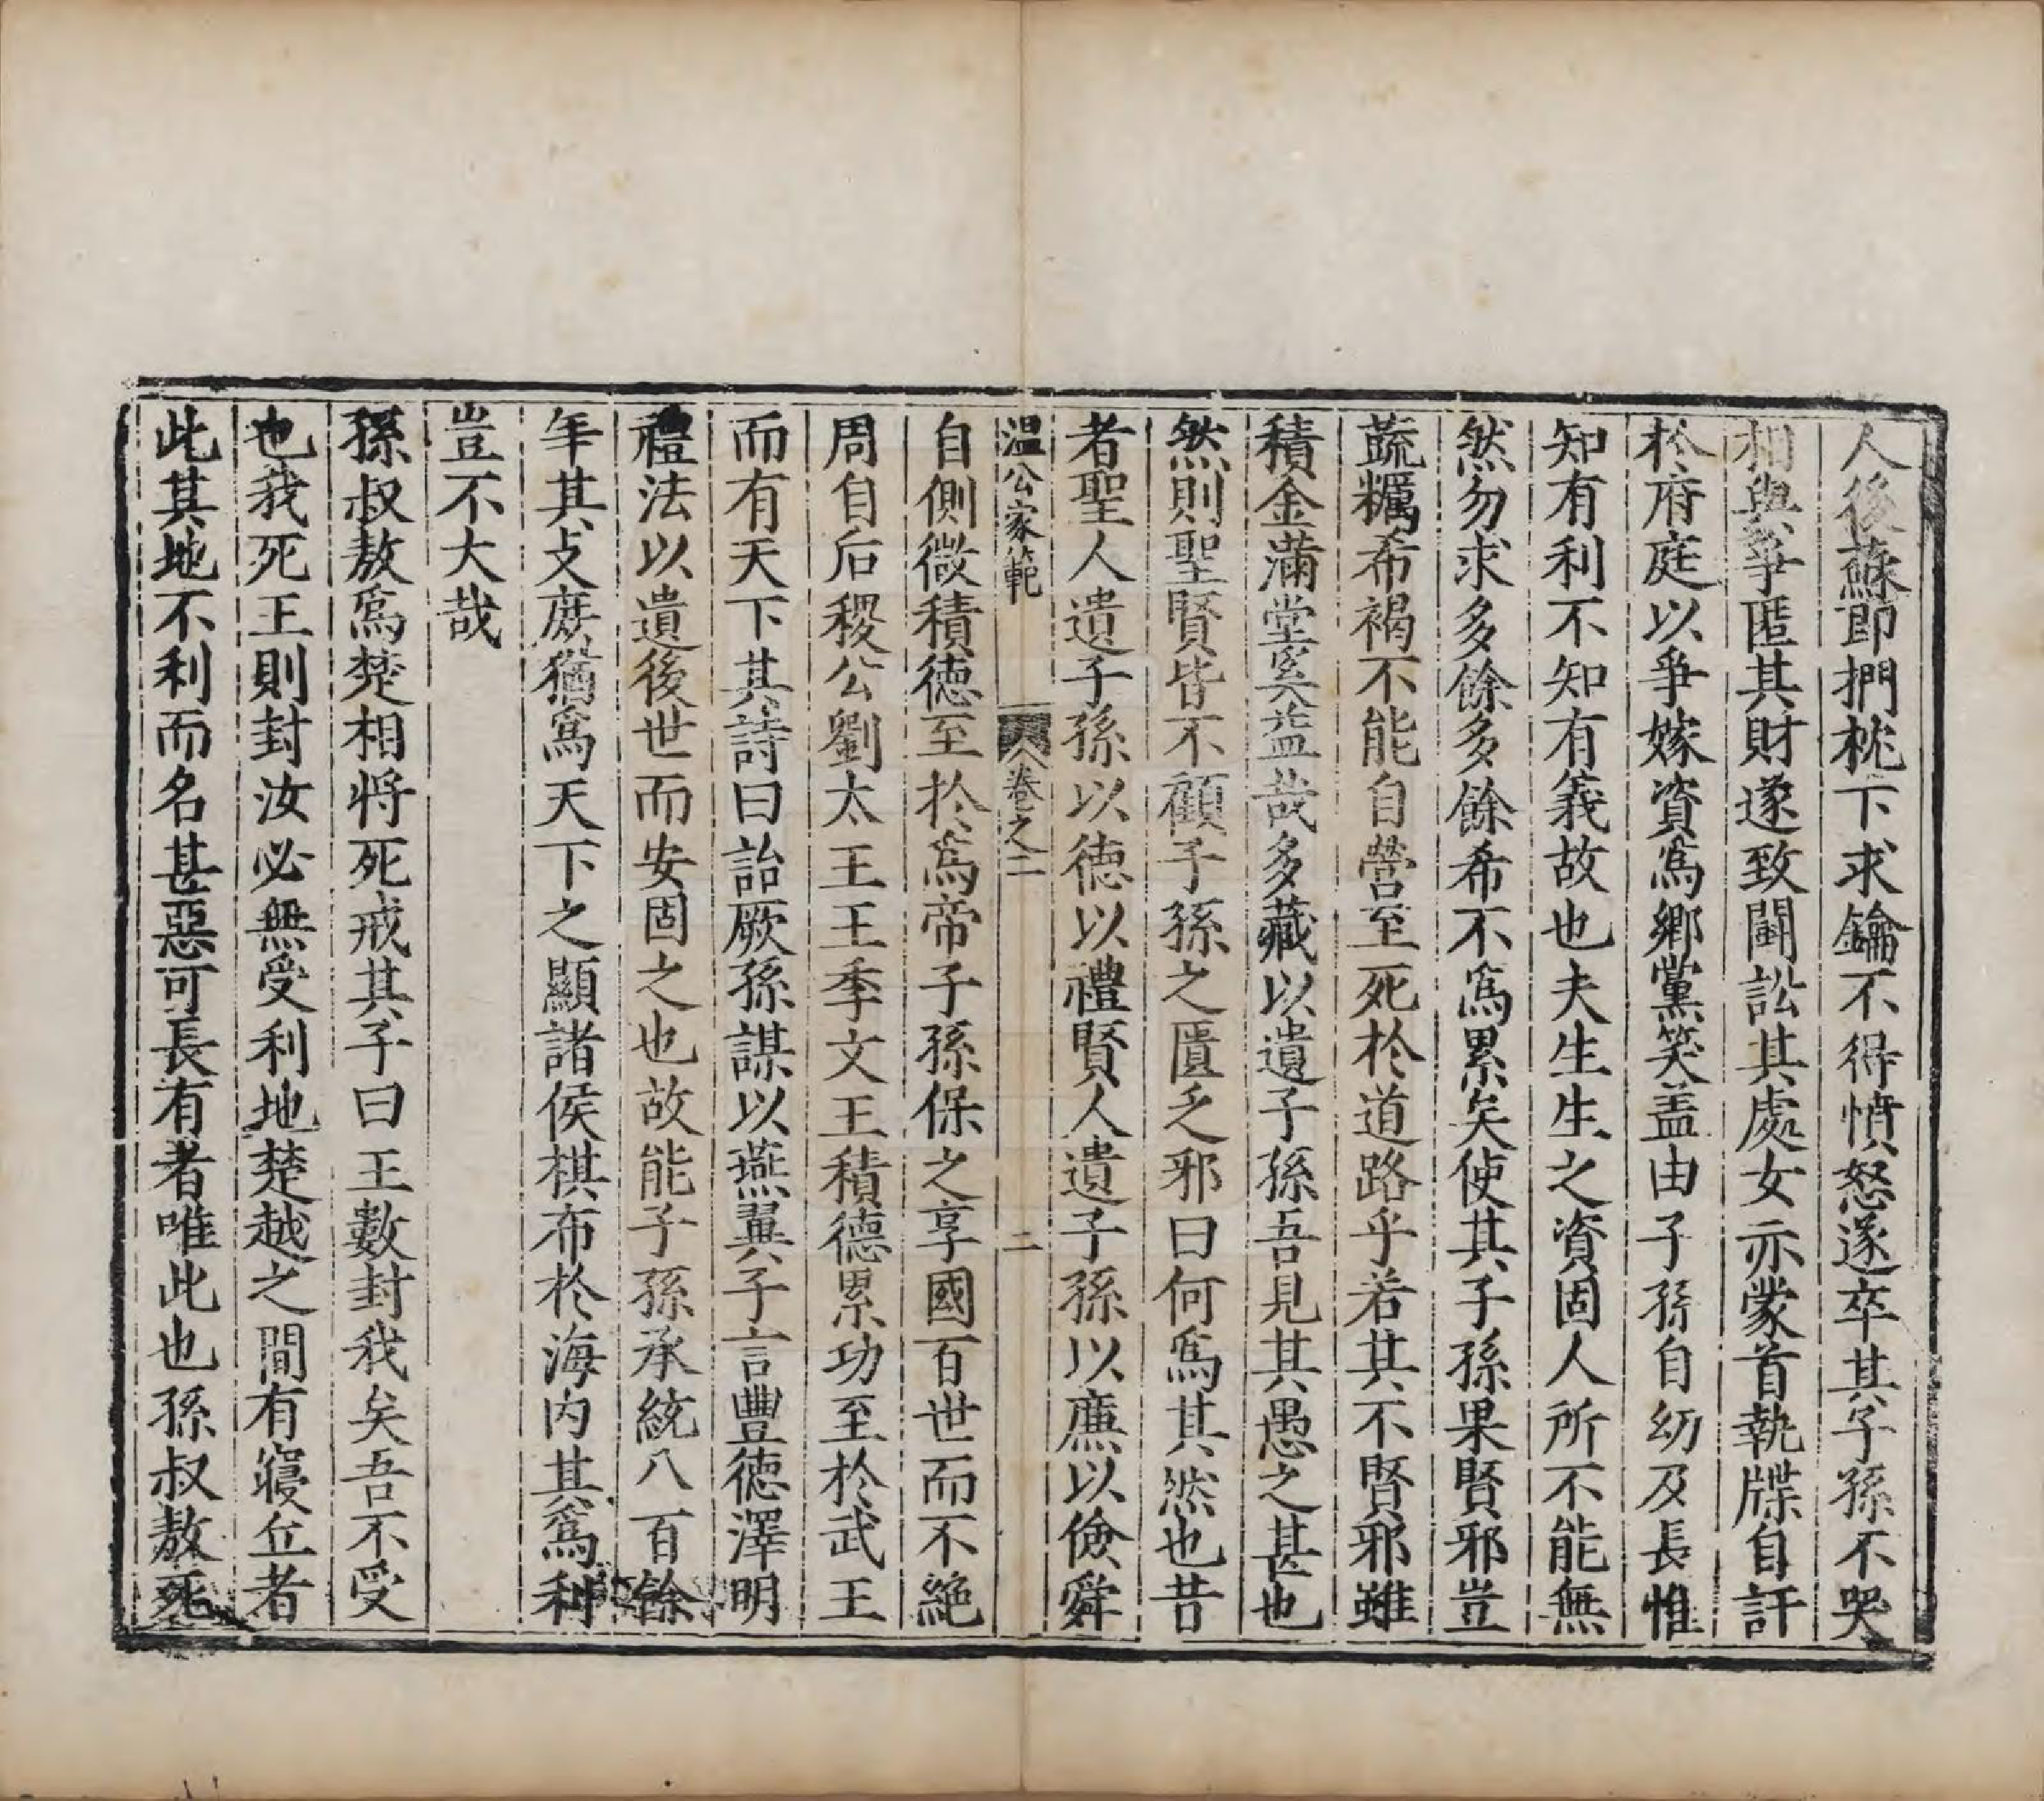 人後蘇即捫枕下求鑰不得憤怒遂卒其子孫不哭
相與爭匿其財遂致鬭訟其處女亦蒙首執牒自訐
於府庭以爭嫁資為鄉黨笑盖由子孫自幼及長惟
知有利不知有義故也夫生生之資固人所不能無
然勿求多餘多餘希不為累矣使其子孫果賢邪豈
蔬糲布褐不能自營至死於道路乎若其不賢邪雖
積金滿堂奚益哉多藏以遺子孫吾見其愚之甚也
然則聖賢皆不顧子孫之匱乏邪曰何為其然也昔
者聖人遺子孫以德以禮賢人遺子孫以廉以儉舜
溫公家範 卷之二 二
自側微積德至於為帝子孫保之享國百世而不絶
周自后稷公劉太王王季文王積德累功至於武王
而有天下其詩曰詒厥孫謀以燕翼子言豐德澤明
禮法以遺後世而安固之也故能子孫承統八百餘
年其支庶猶為天下之顯諸侯棋布於海内其為利
豈不大哉
孫叔敖為楚相將死戒其子曰王數封我矣吾不受
也我死王則封汝必無受利地楚越之間有寢丘者
此其地不利而名甚惡可長有者唯此也孫叔敖死